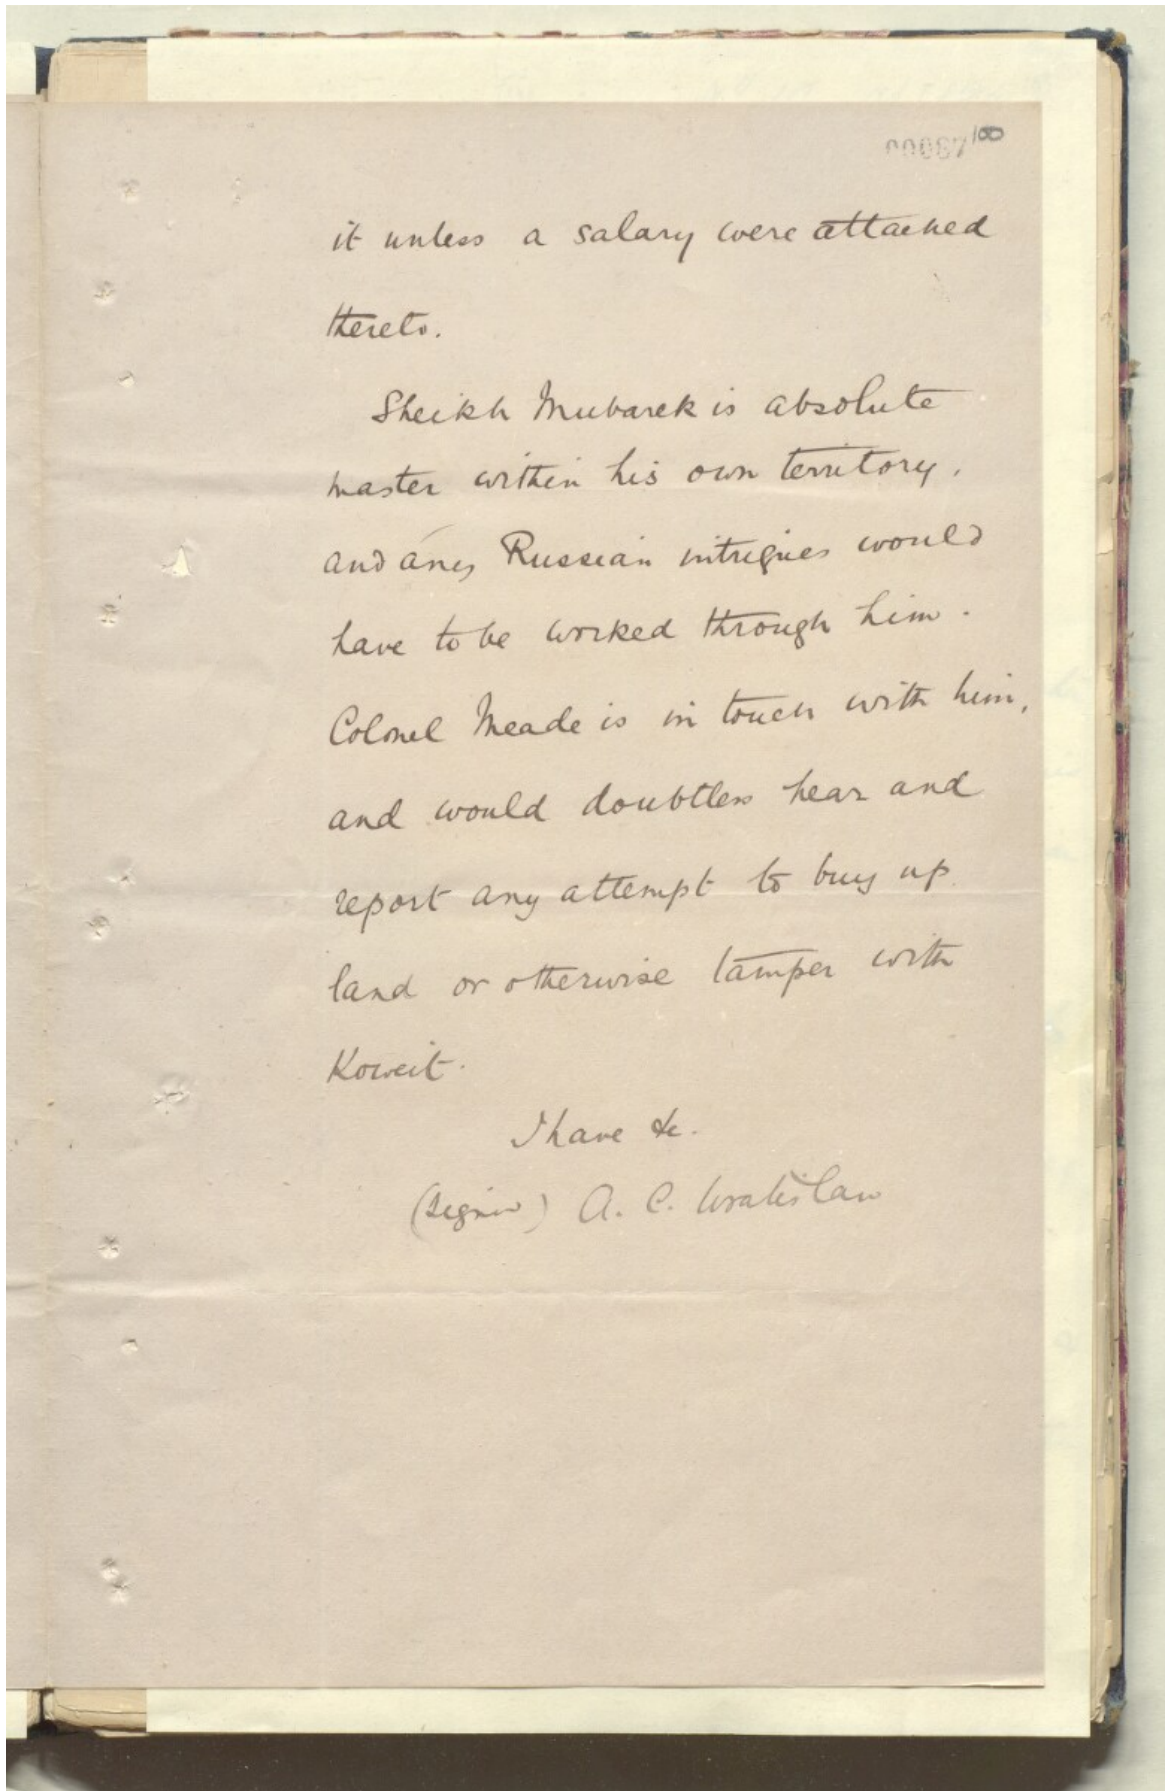 it unless a salary were attached
thereto.
Sheikh Mubarek is absolute
master within his own territory,
and any Russian intrigues would
have to be worked through him.
Colonel Meade is in touch with him,
and would doubtless hear and
report any attempt to buy up
land or otherwise tamper with
Koweit.
I have &c.
(Signed) A. C. Wratislaw